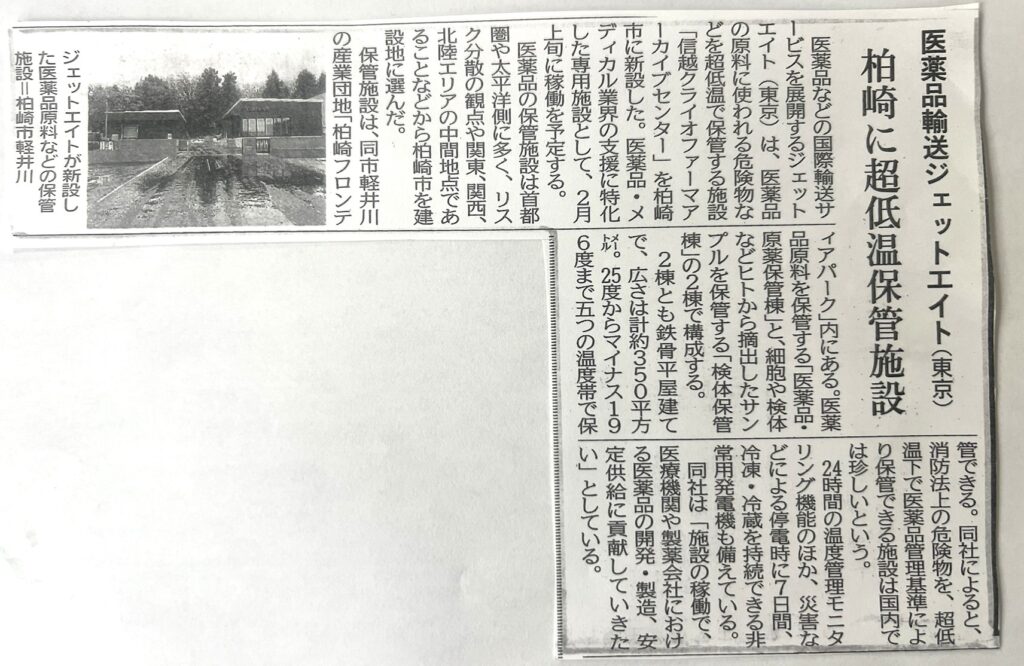 医薬品輸送ジェットエイト(東京)
柏崎に超低温保管施設
医薬品などの国際輸送サ
ービスを展開するジェット
エイト(東京)は、医薬品
の原料に使われる危険物な
どを超低温で保管する施設
「信越クライオファーマア
ーカイブセンター」を柏崎
市に新設した。医薬品・メ
ディカル業界の支援に特化
した専用施設として、2月
上旬に稼働を予定する。
医薬品の保管施設は首都
圏や太平洋側に多く、リス
ク分散の観点や関東、関西、
北陸エリアの中間地点であ
ることなどから柏崎市を建
設地に選んだ。
保管施設は、同市軽井川
の産業団地「柏崎フロンテ
ジェットエイトが新設し
た医薬品原料などの保管
施設=柏崎市軽井川
ィアパーク」内にある。医薬
品原料を保管する「医薬品・
原薬保管棟」と、細胞や検体
などヒトから摘出したサン
プルを保管する「検体保管
棟」の2棟で構成する。
2棟とも鉄骨平屋建て
で、広さは計約350平方
㍍。25度からマイナス19
6度まで五つの温度帯で保
管できる。同社によると、
消防法上の危険物を、超低
温下で医薬品管理基準によ
り保管できる施設は国内で
は珍しいという。
24時間の温度管理モニタ
リング機能のほか、災害な
どによる停電時に7日間、
冷凍・冷蔵を持続できる非
常用発電機も備えている。
同社は「施設の稼働で、
医療機関や製薬会社におけ
る医薬品の開発・製造、安
定供給に貢献していきた
い」としている。